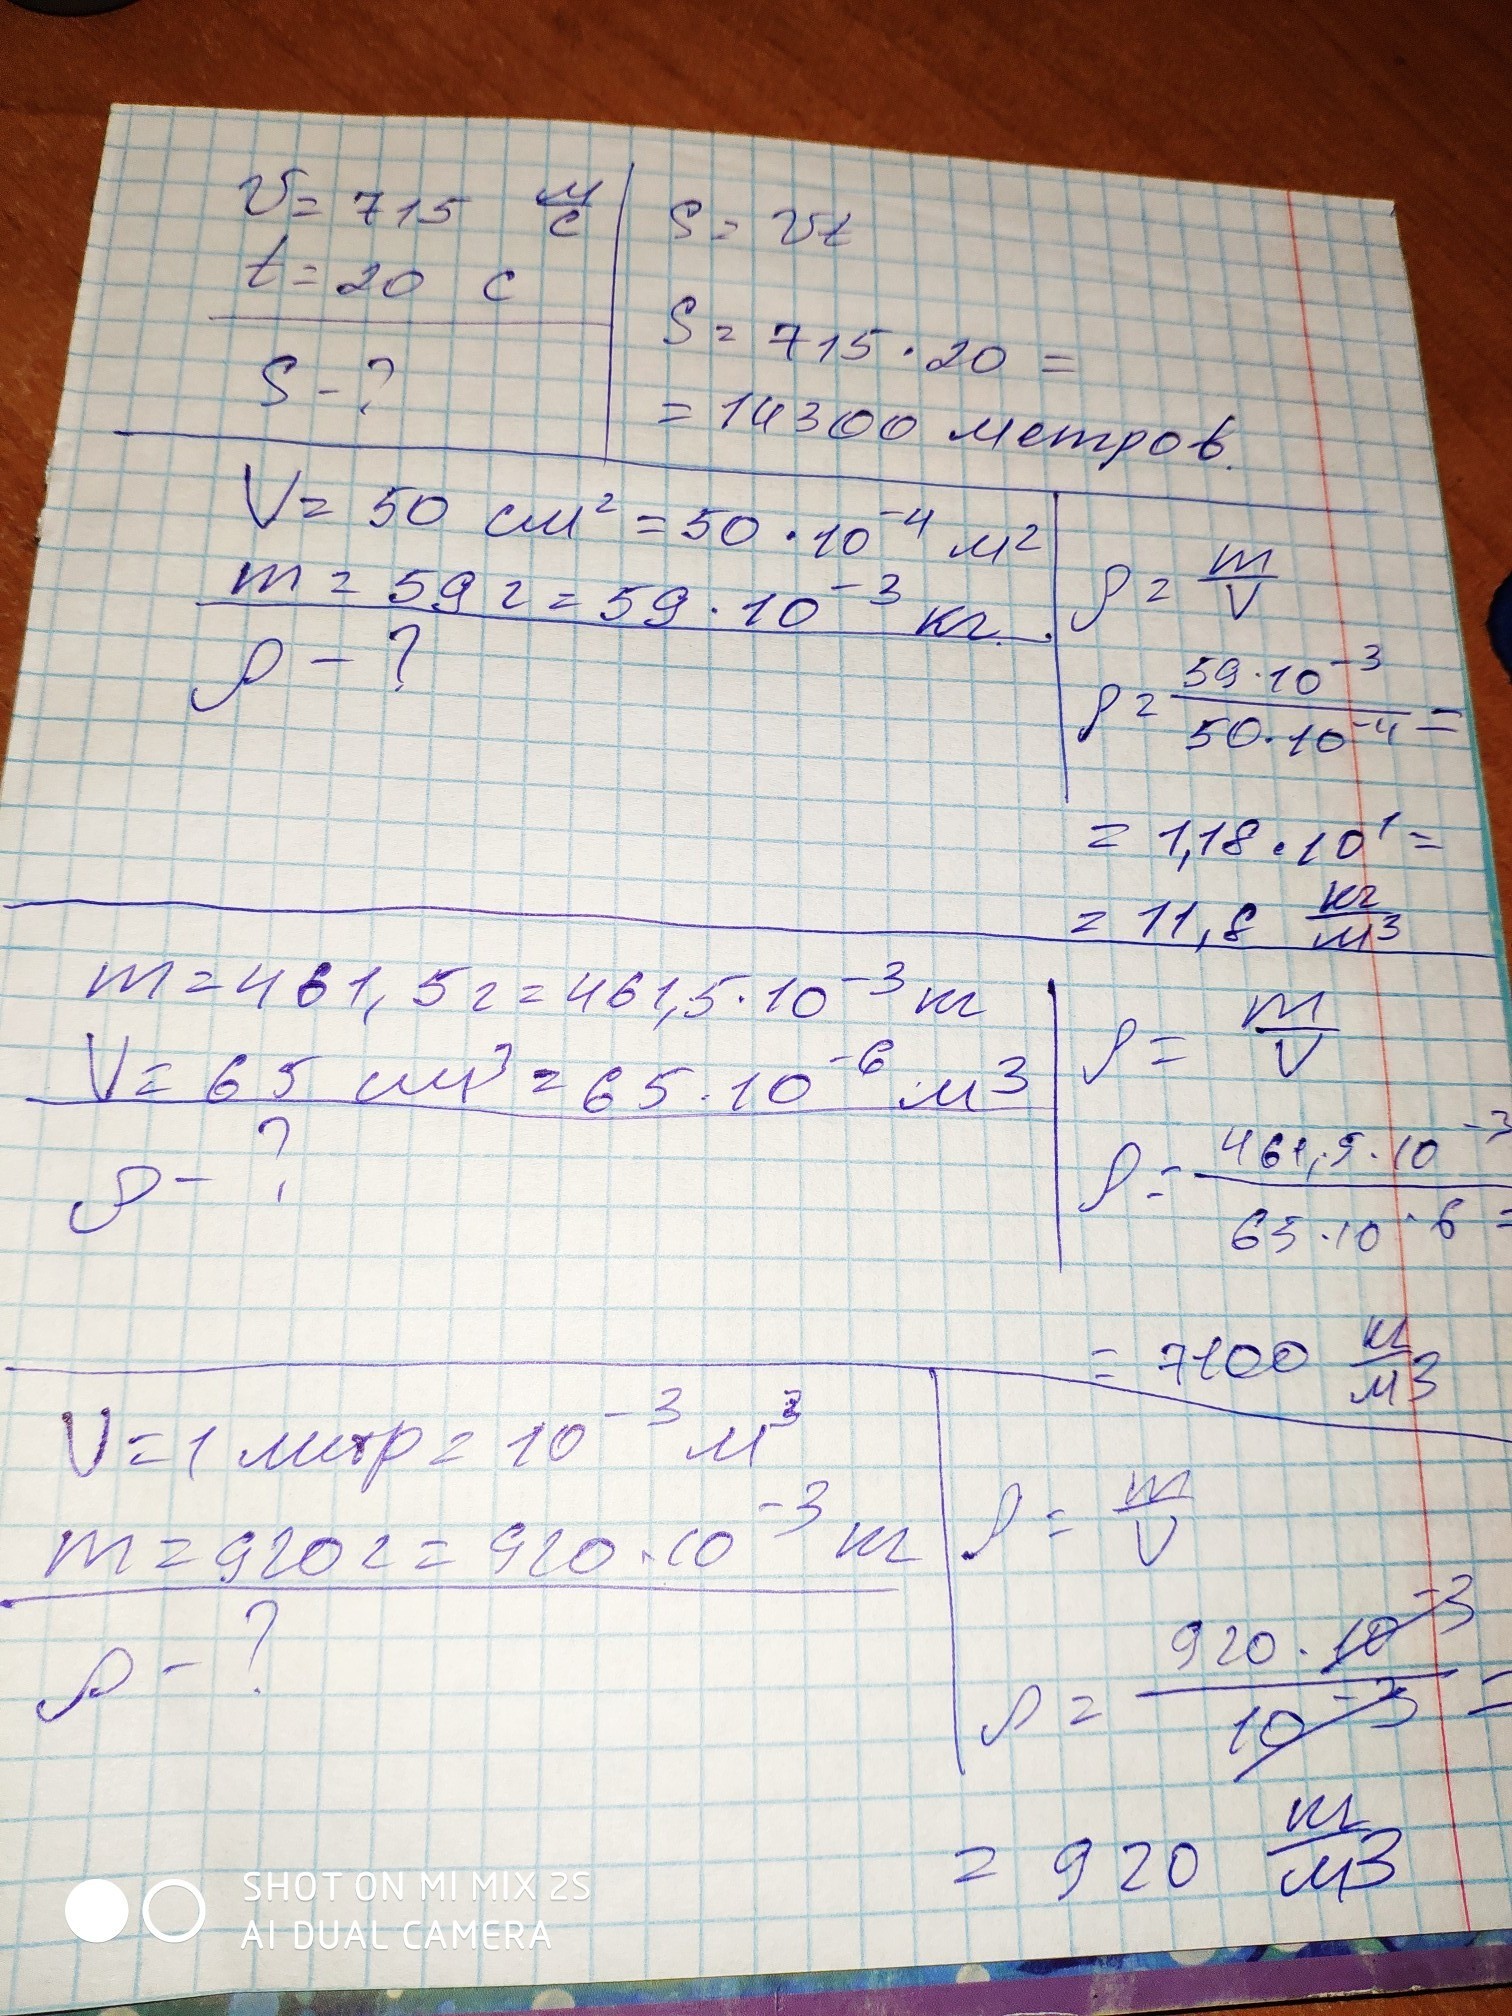 v = 715 м/с
t = 20 с
S - ?
S = vt
S = 715 · 20 =
= 14300 метров.
V = 50 см² = 50 · 10⁻⁴ м²
m = 59 г = 59 · 10⁻³ кг.
ρ - ?
ρ = m/V
ρ = 59 · 10⁻³ / 50 · 10⁻⁴ =
= 1,18 · 10¹ =
= 11,8 кг/м3
m = 461,5 г = 461,5 · 10⁻³ кг
V = 65 см³ = 65 · 10⁻⁶ м3
ρ - ?
ρ = m/V
ρ = 461,5 · 10⁻³ / 65 · 10⁻⁶ =
= 7100 кг/м3
V = 1 литр = 10⁻³ м³
m = 920 г = 920 · 10⁻³ кг
ρ - ?
ρ = m/V
ρ = 920 · 10⁻³ / 10⁻³ =
= 920 кг/м3
SHOT ON MI MIX 2S
AI DUAL CAMERA